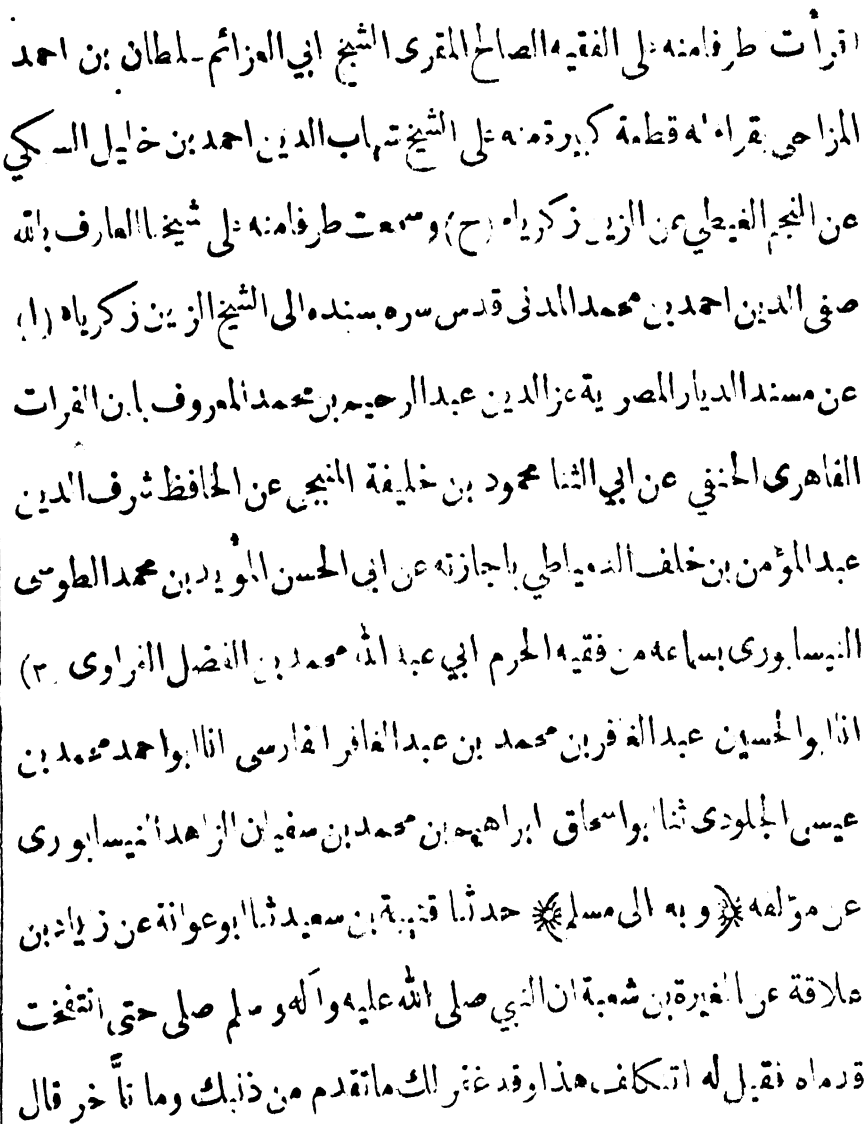 قرأت طرفا منه على الفقيه الصالح المقرى الشيخ ابي العزائم سلطان بن احمد
المزاحي بقراءته قطعة كبيرة منه على الشيخ شهاب الدين احمد بن خليل السبكي
عن النجم الغيطي عن الزين زكرياء (ح) وسمعت طرفا منه على شيخنا العارف بالله
صفى الدين احمد بن محمد المدنى قدس سره بسنده الى الشيخ الزين زكرياء (١)
عن مسند الديار المصرية عز الدين عبد الرحيم بن محمد المعروف بابن الفرات
القاهرى الحنفي عن ابي الثنا محمود بن خليفة المنبجي عن الحافظ شرف الدين
عبد المؤمن بن خلف الدمياطي باجازته عن ابى الحسن المؤيد بن محمد الطوسى
النيسابورى بسماعه من فقيه الحرم ابي عبد الله محمد بن الفضل الفراوى (٣)
انا ابو الحسين عبد الغافر بن محمد بن عبد الغافر الفارسى انا ابو احمد محمد بن
عيسى الجلودى ثنا ابو اسحاق ابراهيم بن محمد بن سفيان الزاهد النيسابورى
عن مؤلفه ﴿وبه الى مسلم﴾ حدثنا قتيبة بن سعيد ثنا ابو عوانة عن زياد بن
علاقة عن المغيرة بن شعبة ان النبي صلى الله عليه وآله وسلم صلى حتى انتفخت
قدماه فقيل له اتكلف هذا وقد غفر لك ما تقدم من ذنبك وما تأخر قال